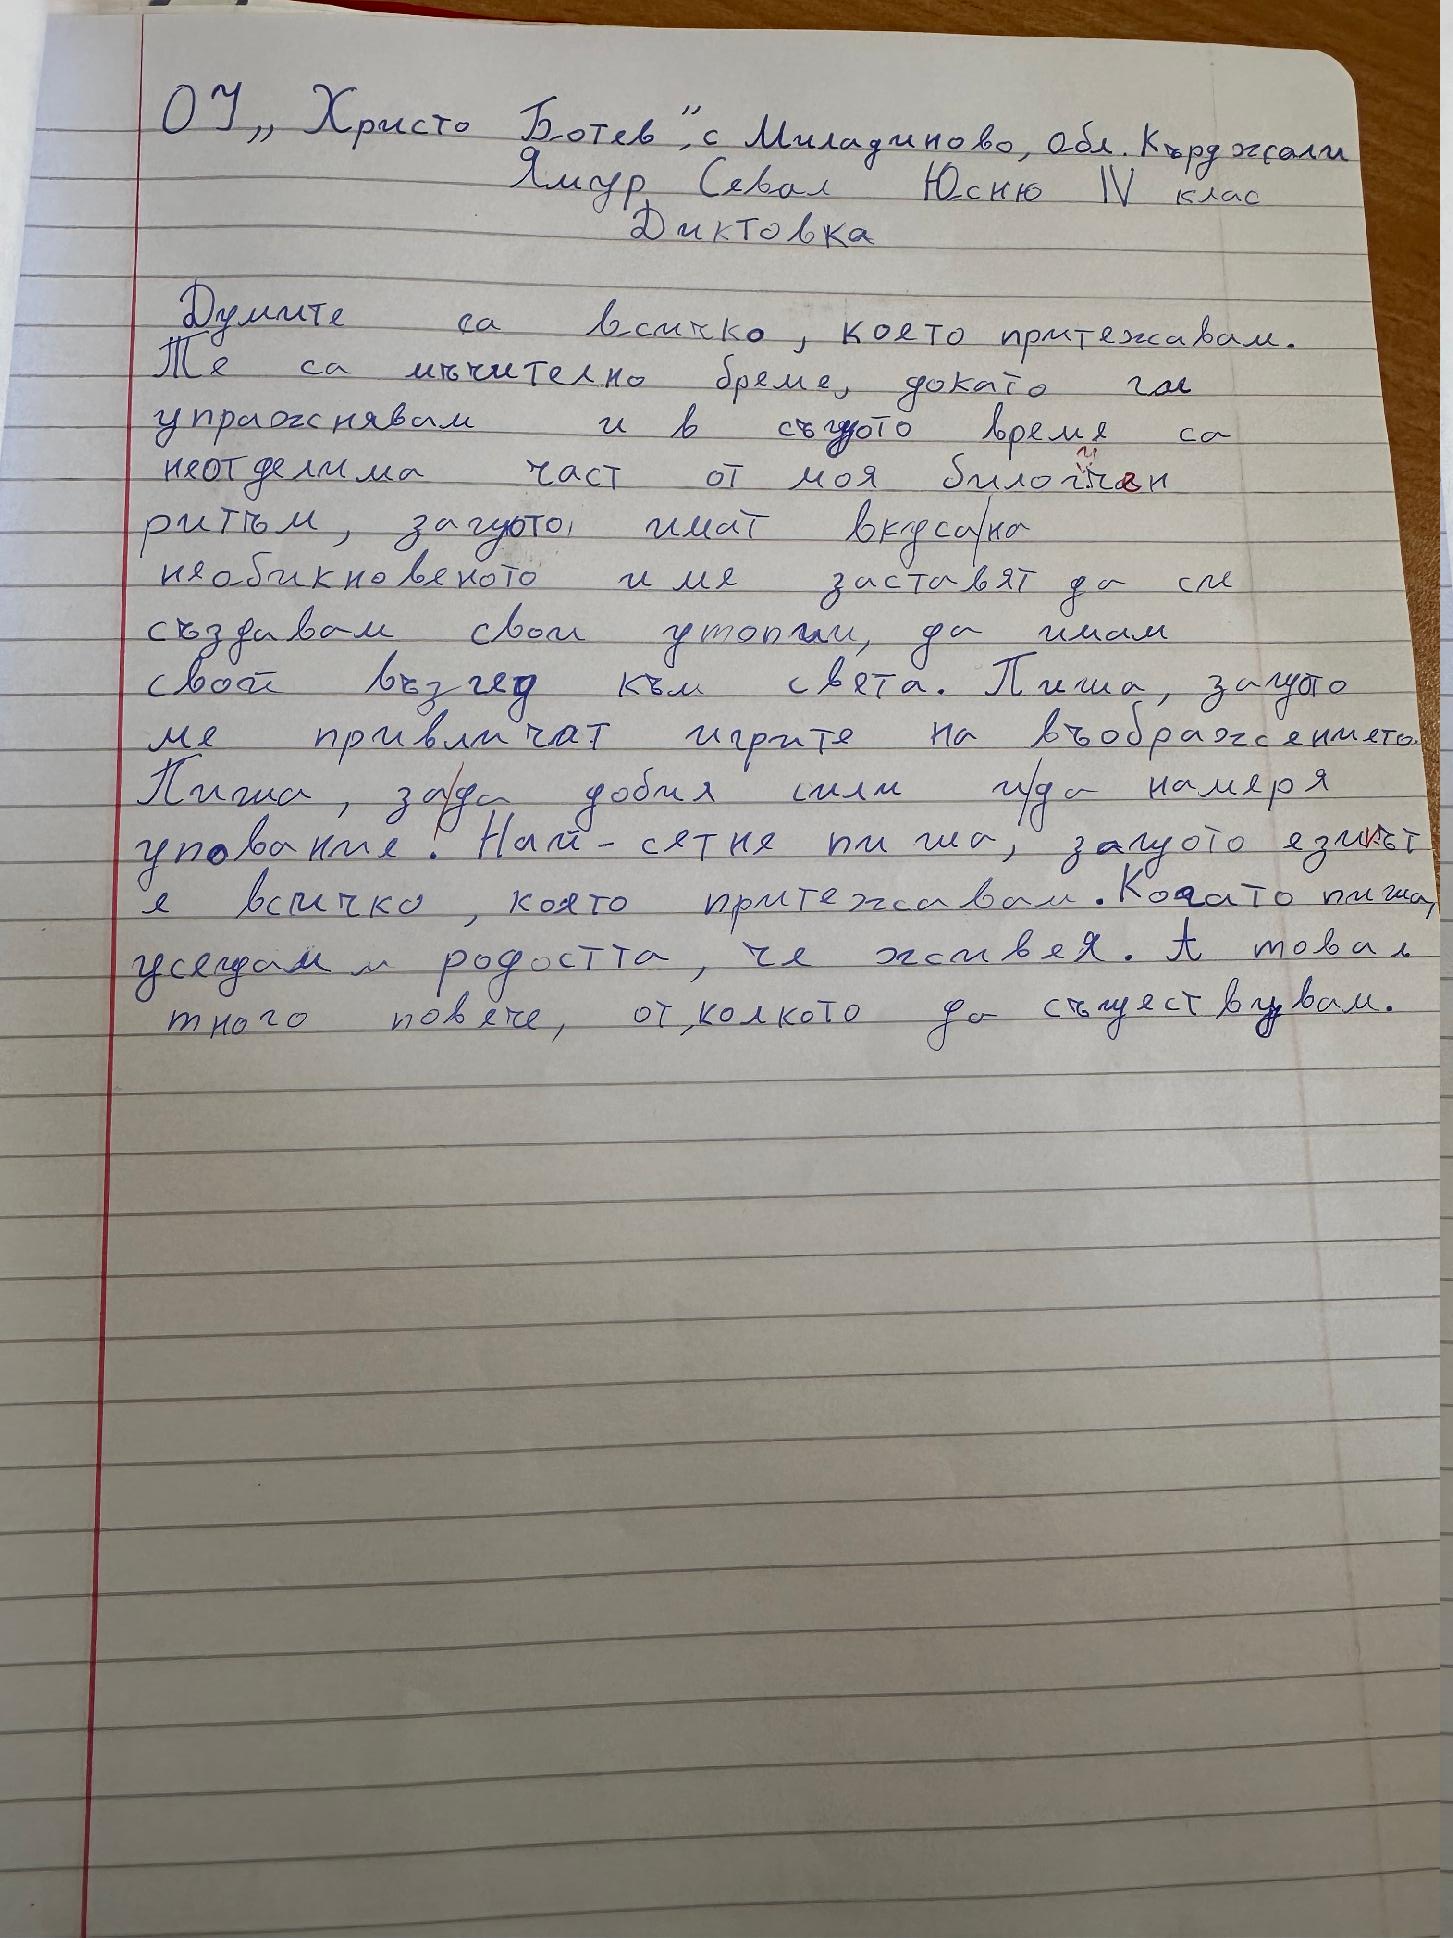 ОУ „Христо Ботев", с Миладиново, обл. Кърджали
Ямур Севал Юсню IV клас
Диктовка
Думите са всичко, което притежавам.
Те са мъчително бреме, докато ги
упражнявам и в същото време са
неотделима част от моя биологичен
ритъм, защото имат вкуса/на
необикновеното и ме заставят да си
създавам свои утопии, да имам
свой възглед към света. Пиша, защото
ме привличат игрите на въображението.
Пиша, за/да добия сили и/да намеря
упование! Най-сетне пиша, защото езикът
е всичко, което притежавам. Когато пиша,
усещам и родостта, че живея. А това е
много повече, от,колкото да съществувам.